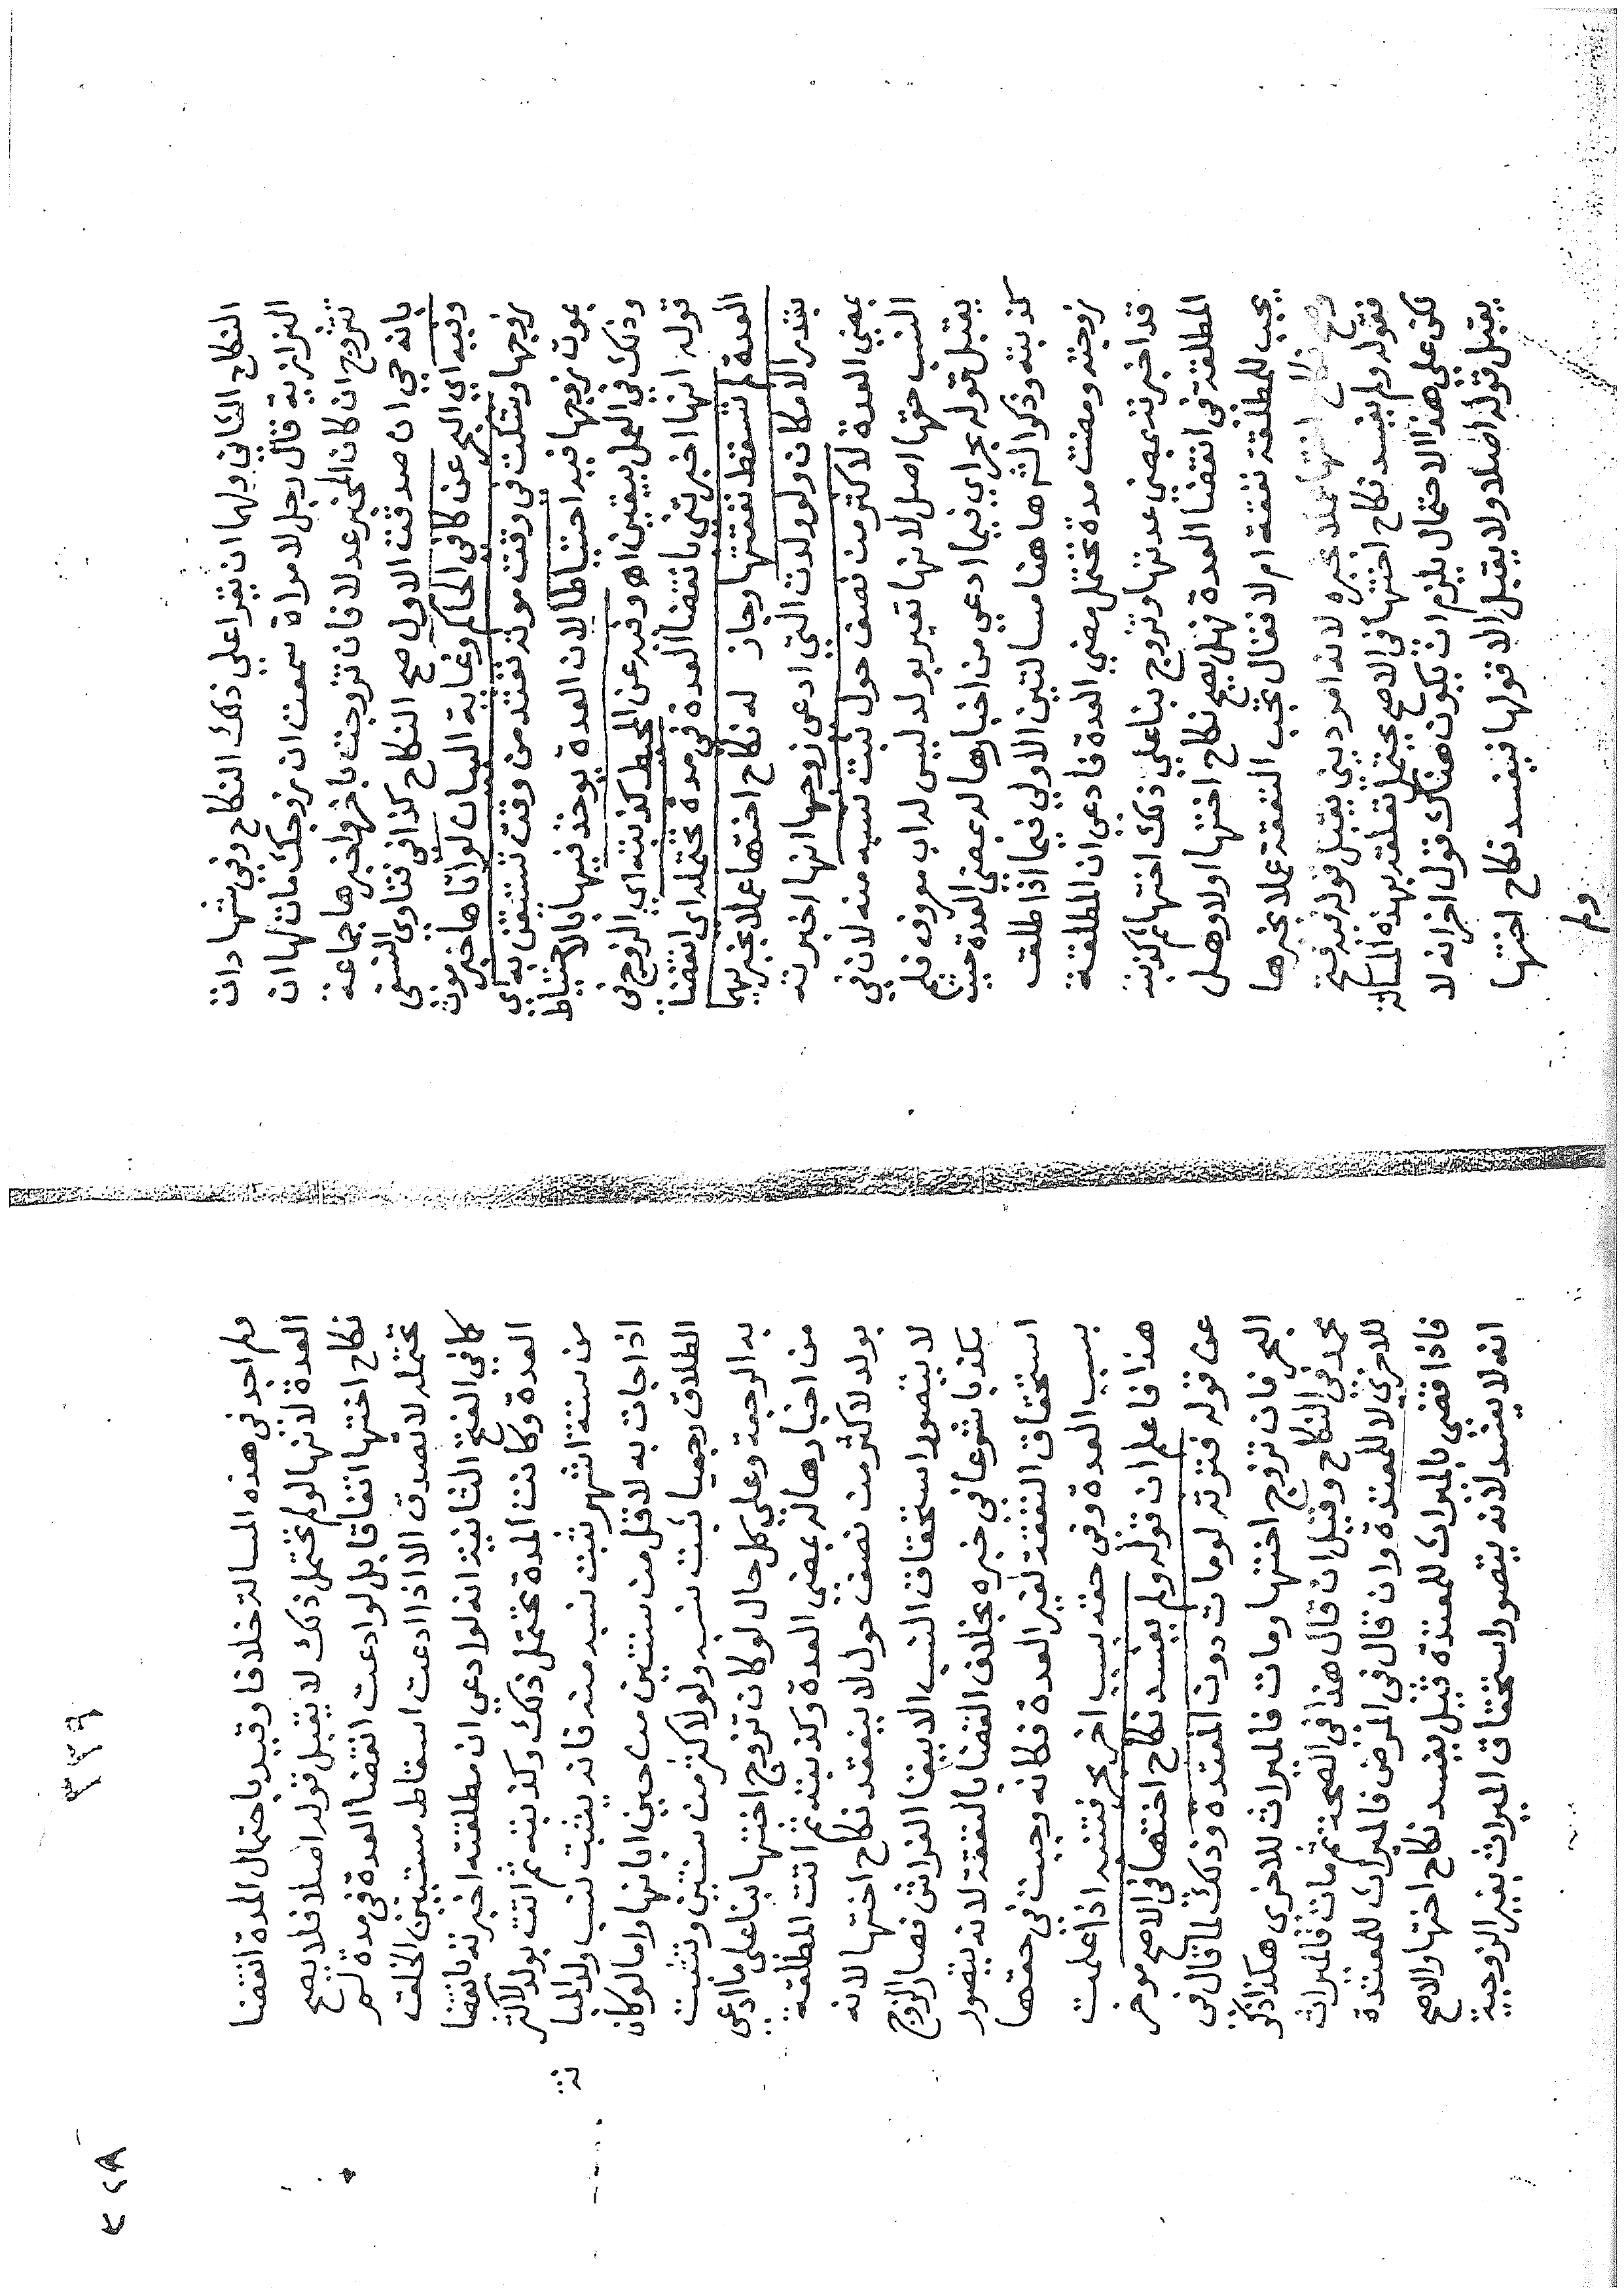 النكاح الثاني ولها ان يقرا على ذلك النكاح وفي شهادات
البزازية قال رجل لامراة سمعت ان زوجك مات لها ان
تتزوج ان كان المخبر عدلا فان تزوجت باخر واخبرها جماعة
بانه حي ان صدقت الاول صح النكاح كذا في فتاوى النسفي
وفيه اي البحر عن كافي الحاكم وغاية البيان لو اتاها خبر موت
زوجها وشكت في وقت موته تعتد من وقت تستيقن به اي
بموت زوجها فيه احتياطا لان العدة يوخذ فيها بالاحتياط
وذلك في العمل بيقين اه وفيه عن المحيط كذبته اي الزوج في
قوله انها اخبرتني بانقضا العدة في مدة تحتمله اي انقضا
العدة لم تسقط نفقتها وجاز له نكاح اختها عملا بخبريهما
بقدر الامكان ولو ولدت التي ادعى زوجها انها اخبرته
بمضي العدة لاكثر من نصف حول ثبت نسبه منه لان في
النسب حقها اصل لانها تعير بولد ليس له اب معروف فلم
يقبل قوله بحراي فيما ادعي من اخبارها له بمضي العدة حيث
كذبته وذكر الشر ها هنا مسالتين الاولي فيما اذا طلق
زوجته ومضت مدة تحتمل مضي العدة فادعي ان المطلقة
قد اخبرته بمضي عدتها وتزوج بناعلي ذلك اختها ثم كذبته
المطلقة في انقضا العدة فهل يصح نكاح اختها اولا وهل
يجب للمطلقة نفقة ام لا فقال تجب النفقة عملا بخبرها
وصح نكاح اختها عملا بخبره لانه امر ديني يقبل قوله فيه فتح
فقوله ولم يفسد نكاح اختها في الاصح يحتمل تعلقه بهذه المسالة
لكن على هذا الاحتمال يلزم ان يكون هناك قول اخر انه لا
يقبل قوله اصلا ولا يقبل الا قولها فيفسد نكاح اختها
ولم
٢٢٩
ولم اجد في هذه المسالة خلافا وقيد باحتمال المدة انقضا
العدة لانها لو لم تحتمل ذلك لا يقبل قوله اصلا فلا يصح
نكاح اختها اتفاقا بل لو ادعت انقضا العدة في مدة لم
تحتمله لا تصدق الا اذا ادعت اسقاط مستبين الخلق
كما في الفتح الثانية انه لو ادعي ان مطلقته اخبرته بانقضا
العدة وكانت المدة تحتمل ذلك وكذبته ثم اتت بولد لاكثر
من ستة اشهر ثبت نسبه منه فانه يثبت نسب ولد المبا
نة
اذا جات به لاقل من سنتين من حين ابانها واما لو كان
الطلاق رجعيا ثبت نسبه ولو لاكثر من سنتين وتثبت
به الرجعة وعلي كل حال لو كان تزوج اختها بنا علي ما ادعى
من اخبارها له بمضي العدة وكذبته ثم اتت المطلقة
بولد لاكثر من نصف حول لا ينعقد نكاح اختها لانه
لا يتصور استحقاق النسب الا ببقا الفراش فصار الزوج
مكذبا شرعا في خبره بخلاف القضا بالنفقة لانه يتصور
استحقاق النفقة لغير العدة فكانه وجبت في حقها
بسبب العدة وفي حقه بسبب اخر بحر فتنبه اذا علمت
هذا فاعلم ان قوله ولم يفسد نكاح اختها في الاصح موخر
عن قوله فترثه لو مات دون المعتدة وذلك لما قال في
البحر فان تزوج اختها ومات فالميراث للاخرى هكذا ذكر
محمد في النكاح وقيل ان قال هذا في الصحة ثم مات فالميراث
للاخرى لا للمعتدة وان قال في المرض فالميراث للمعتدة
فاذا قضي بالميراث للمعتدة قيل يفسد نكاح اختها والاصح
انه لا يفسد لانه يتصور استحقاق الميراث بغير الزوجية